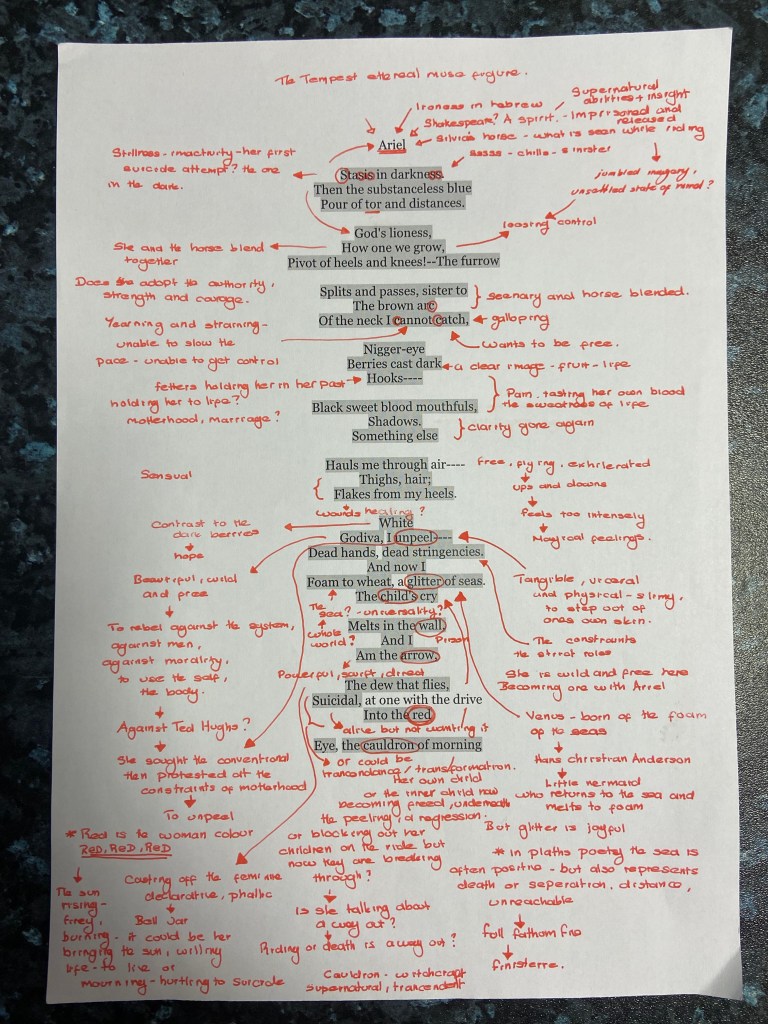 The Tempest ethereal muse figure.
Lioness in hebrew
Shakespeare? A spirit. - Imprisoned and released
Supernatural abilities + insight
Silvia's horse - what is seen while riding
Ariel
Ssss - chills - sinister
Stillness - inactivity - her first
suicide attempt? the one
in the dark.
jumbled imagery,
unsettled state of mind?
Stasis in darkness.
Then the substanceless blue
Pour of tor and distances.
loosing control
God's lioness,
How one we grow,
Pivot of heels and knees!--The furrow
She and the horse blend
together
Does she adopt the authority,
strength and courage.
Splits and passes, sister to
The brown arc
Of the neck I cannot catch,
scenary and horse blended.
galloping
Yearning and straining -
unable to slow the
pace - unable to get control
wants to be free.
Nigger-eye
Berries cast dark
Hooks----
a clear image - fruit - life
fetters holding her in her past
holding her to life?
motherhood, marriage?
Black sweet blood mouthfuls,
Shadows.
Something else
Pain, tasting her own blood
the sweetness of life
clarity gone again
Hauls me through air----
Thighs, hair;
Flakes from my heels.
Sensual
Free, flying, exhilerated
ups and downs
feels too intensely
Magical feelings.
wounds healing?
White
Godiva, I unpeel----
Dead hands, dead stringencies.
Contrast to the
dark berries
hope
And now I
Foam to wheat, a glitter of seas.
The child's cry
Beautiful, wild
and free
Tangible, visceral
and physical - slimy,
to step out of
ones own skin.
The sea? - universality?
whole world?
Melts in the wall,
And I
Am the arrow,
Prison
To rebel against the system,
against men,
against morality,
to use the self,
the body.
The constraints
the strict roles
Powerful, swift, direct
The dew that flies,
Suicidal, at one with the drive
Into the red
She is wild and free here
Becoming one with Ariel
Against Ted Hughs?
alive but not wanting it
Eye, the cauldron of morning
Venus - born of the foam
of the seas
She sought the conventional
then protested at the
constraints of motherhood
or could be
trancendance/transformation.
Her own child
or the inner child now
becoming freed, underneath
the peeling, a regression.
Hans Christian Anderson
Little mermaid
who returns to the sea and
melts to foam
To unpeel
But glitter is joyful
* Red is the woman colour
RED, RED, RED
or blocking out her
children on the ride but
now they are breaking
through?
* in plaths poetry the sea is
often positive - but also represents
death or seperation, distance,
unreachable
Casting off the feminine
declarative, phallic
Bell Jar
The sun
rising -
firey,
burning - it could be her
bringing the sun, willing
life - to live or
mourning - hurtling to suicide
Is she talking about
a way out?
Riding or death is a way out?
full fathom five
finisterre.
Cauldron - witchcraft
supernatural, trancendent